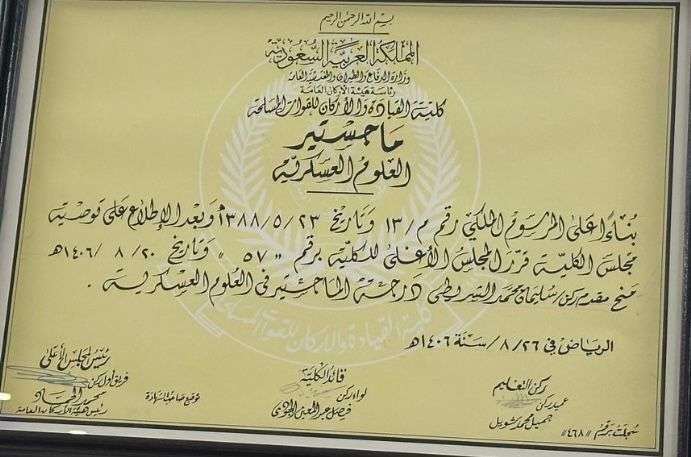 بسم الله الرحمن الرحيم
المملكة العربية السعودية
وزارة الدفاع والطيران والمفتشية العامة
رئاسة هيئة الأركان العامة
كلية القيادة والأركان للقوات المسلحة
ماجستير
العلوم العسكرية
بناءا على المرسوم الملكي رقم م/١٣ وتاريخ ٢٣/٥/١٣٨٨ه وبعد الإطلاع على توصية
مجلس الكلية قرر المجلس الأعلى للكلية برقم "٥٧" وتاريخ ٢٠/٨/١٤٠٦ه
منح مقدم ركن/ سليمان محمد درجة الماجستير في العلوم العسكرية.
الرياض في ٢٦/٨/سنة ١٤٠٦ه
رئيس المجلس الأعلى
فريق أول ركن
محمد الحماد
رئيس هيئة الأركان العامة
توقيع صاحب الشهادة
قائد الكلية
لواء ركن
فيصل عبد المعين
ركن التعليم
عميد ركن
جميل محمد
سجلت برقم "٤٦٨"
كلية القيادة والأركان للقوات المسلحة